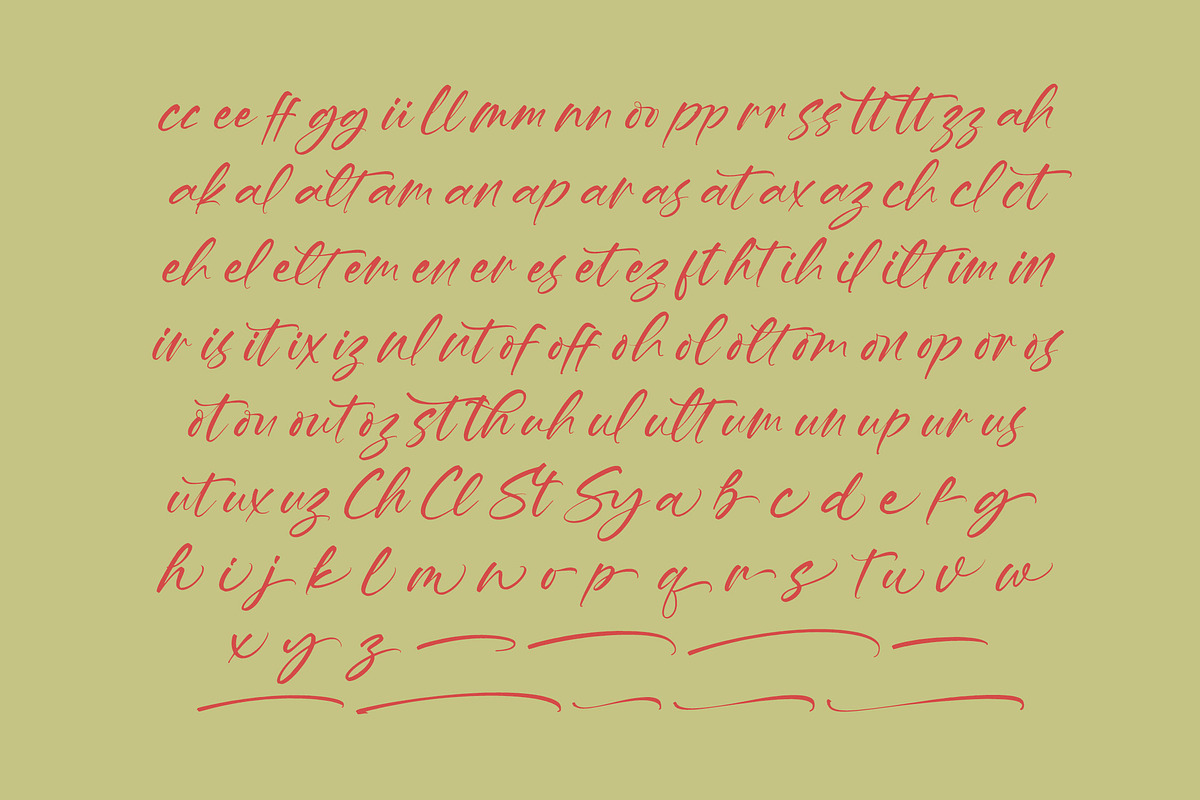 cc ee ff gg ii ll mm nn oo pp rr ss tt tt zz ah
ak al alt am an ap ar as at ax az ch cl ct
eh el elt em en er es et ez ft ht ih il ilt im in
ir is it ix iz nl nt of off oh ol olt om on op or os
ot ou out oz st th uh ul ult um un up ur us
ut ux uz Ch Cl St Sy a b c d e f g
h i j k l m n o p q r s t u v w
x y z